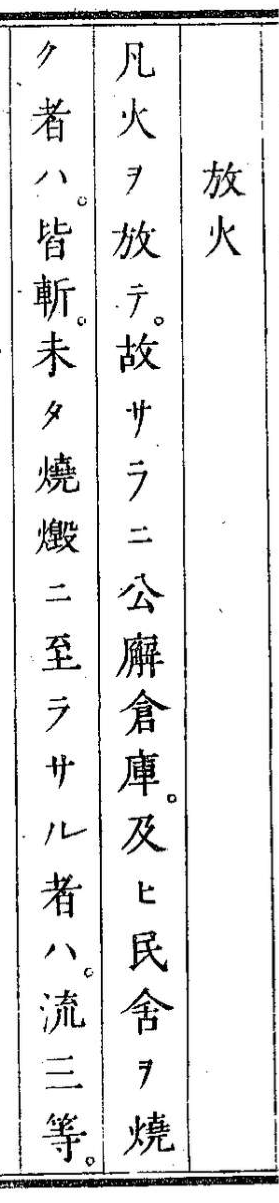 放火
凡火ヲ放テ。故サラニ公廨倉庫。及ヒ民舍ヲ燒
ク者ハ。皆斬。未タ燒燬ニ至ラサル者ハ。流三等。